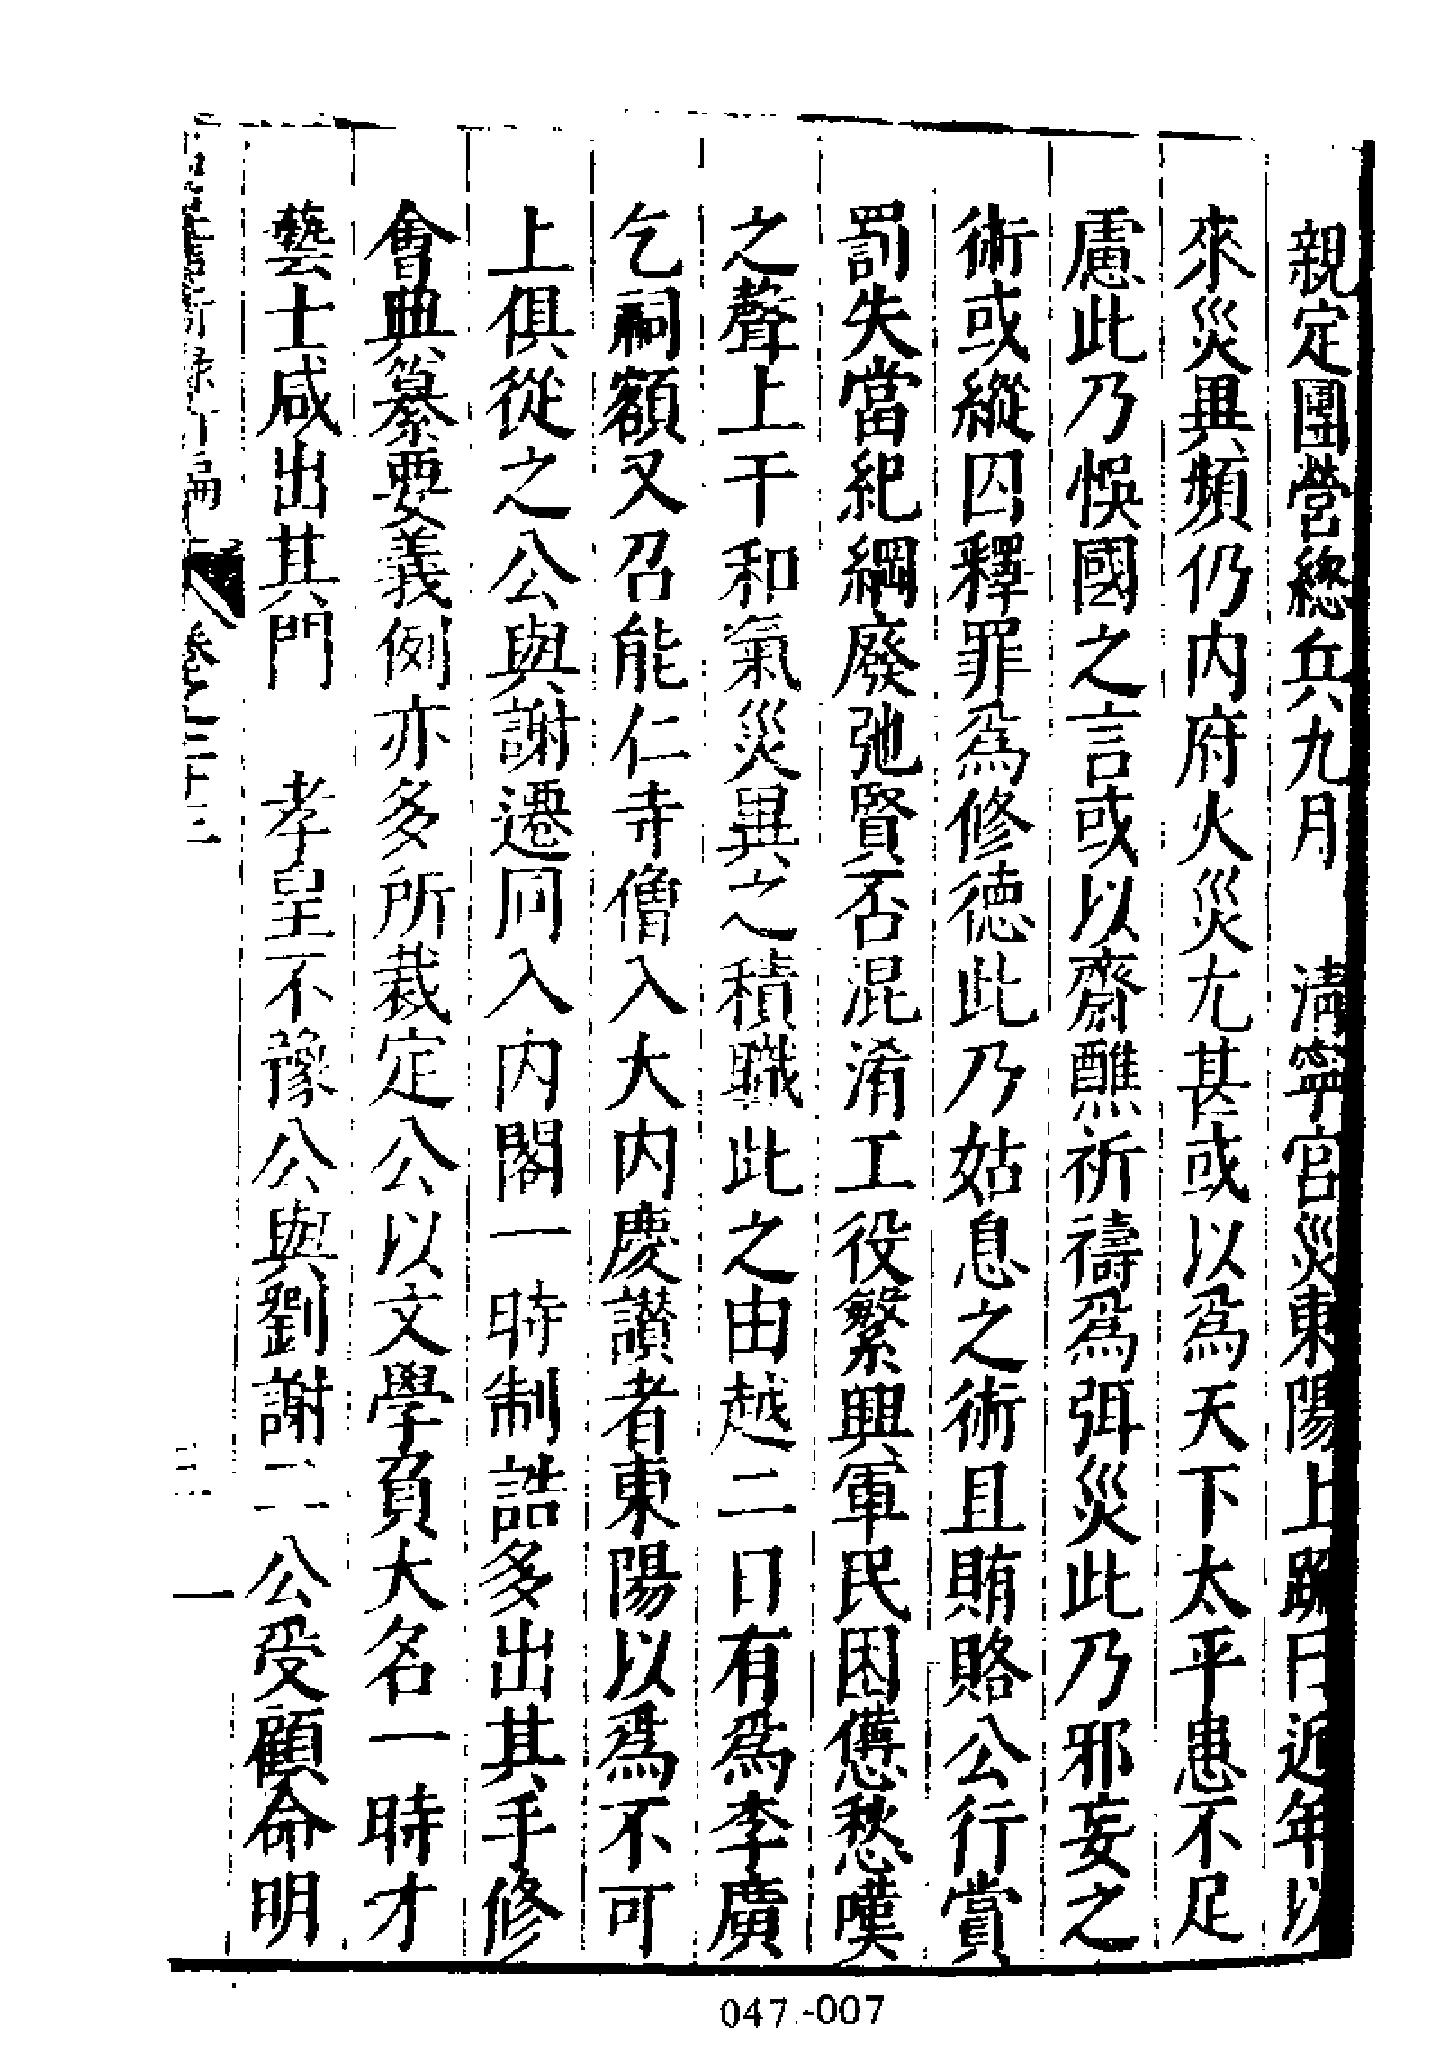 親定團營總兵九月　清寧宮災東陽上疏曰近年以
來災異頻仍内府火災尤甚或以爲天下太平患不足
慮此乃悞國之言或以齋醮祈禱爲弭災此乃邪妄之
術或縱囚釋罪爲修德此乃姑息之術且賄賂公行賞
罰失當紀綱廢弛賢否混淆工役繁興軍民困憊愁嘆
之聲上干和氣災異之積職此之由越二日有爲李廣
乞祠額又召能仁寺僧入大内慶讃者東陽以爲不可
上俱從之公與謝遷同入内閣一時制誥多出其手修
會典纂要義例亦多所裁定公以文學負大名一時才
藝士咸出其門　孝皇不豫公與劉謝二公受顧命明
編
卷之三十三
一
047-007